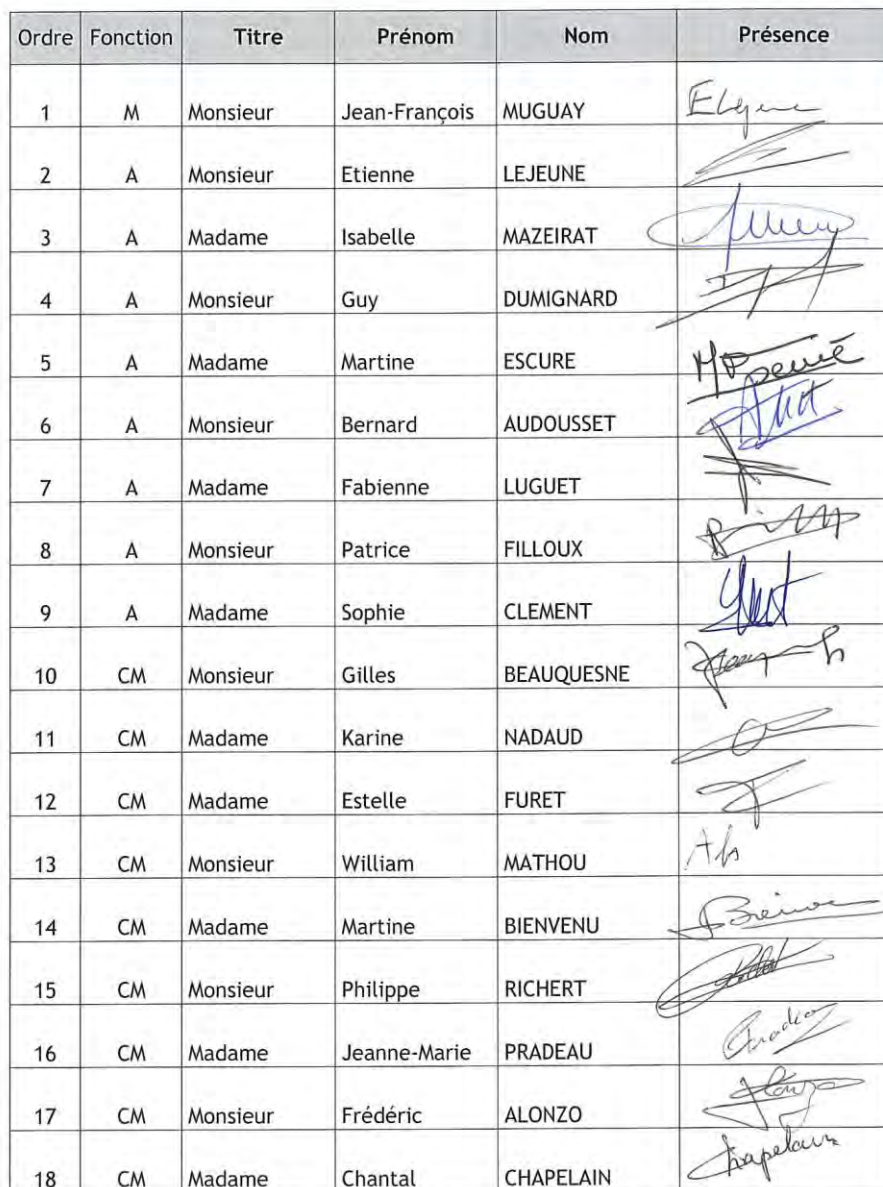 Ordre Fonction Titre Prénom Nom Présence
1 M Monsieur Jean-François MUGUAY
2 A Monsieur Etienne LEJEUNE
3 A Madame Isabelle MAZEIRAT
4 A Monsieur Guy DUMIGNARD
5 A Madame Martine ESCURE
6 A Monsieur Bernard AUDOUSSET
7 A Madame Fabienne LUGUET
8 A Monsieur Patrice FILLOUX
9 A Madame Sophie CLEMENT
10 CM Monsieur Gilles BEAUQUESNE
11 CM Madame Karine NADAUD
12 CM Madame Estelle FURET
13 CM Monsieur William MATHOU
14 CM Madame Martine BIENVENU
15 CM Monsieur Philippe RICHERT
16 CM Madame Jeanne-Marie PRADEAU
17 CM Monsieur Frédéric ALONZO
18 CM Madame Chantal CHAPELAIN Chapelain